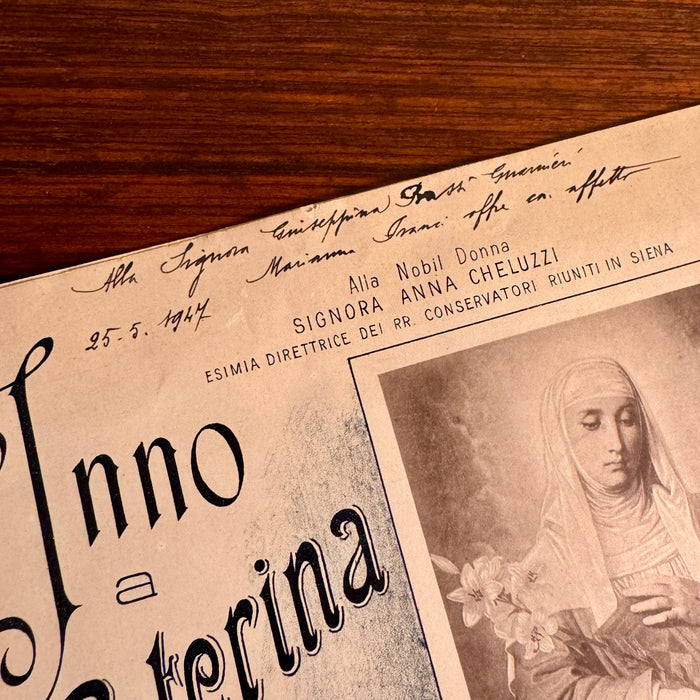 Alla Signora Giuseppina Bassi Guarnieri
Marianna Franci offre con affetto
25-5. 1947
Alla Nobil Donna
SIGNORA ANNA CHELUZZI
ESIMIA DIRETTRICE DEI RR. CONSERVATORI RIUNITI IN SIENA
Inno
a
aterina